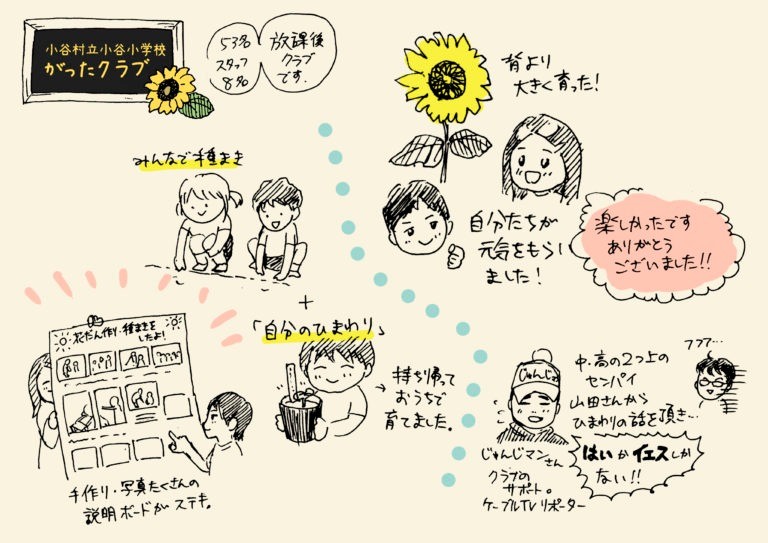 小谷村立小谷小学校
がったクラブ
放課後
クラブ
です.
53名
スタッフ
8名
背より
大きく育った!
みんなで種まき
自分たちが
元気をもらい
ました!
楽しかったです
ありがとう
ございました!!
花だん作り・種まきを
したよ!
+
「自分のひまわり」
→ 持ち帰って
おうちで
育てました。
手作り・写真たくさんの
説明ボードがステキ。
じゅんじ
じゅんじマンさん
クラブの
サポート。
ケーブルTVリポーター
中・高の2つ上の
センパイ
山田さんから
ひまわりの話を頂き…
フフフ…
はいかイエスしか
ない!!